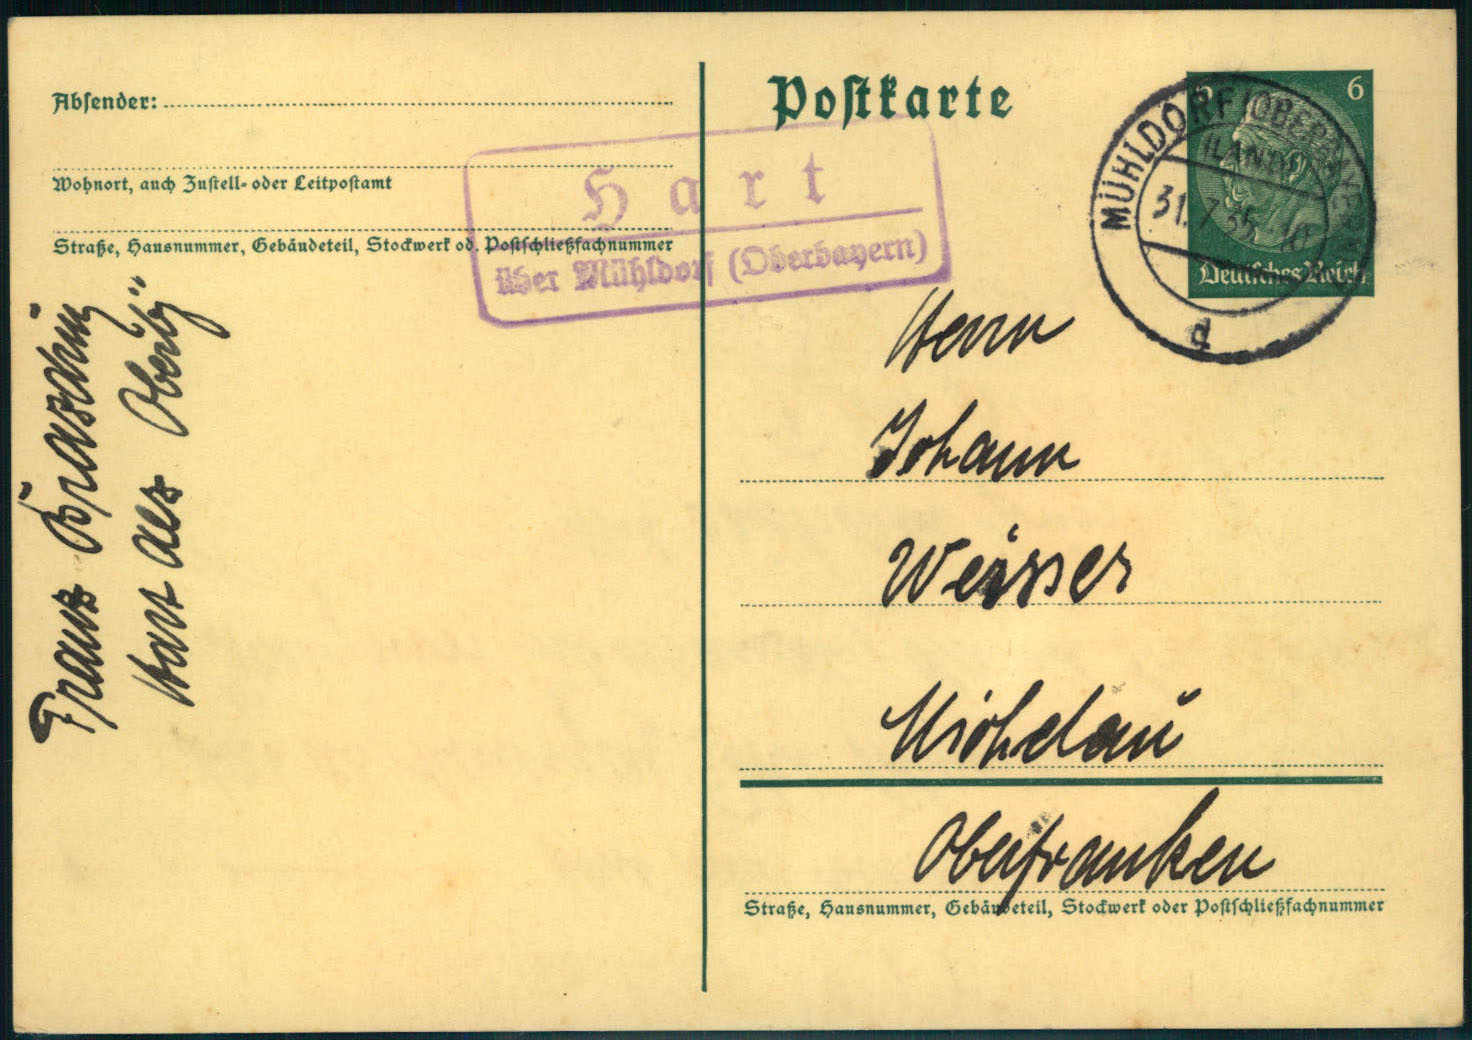 Absender:
Wohnort, auch Zustell- oder Leitpostamt
Straße, Hausnummer, Gebäudeteil, Stockwerk od. Postschließfachnummer
Postkarte
Hart
über Mühldorf (Oberbayern)
6
Deutsches Reich
MÜHLDORF (OBERBAYERN)
(LAND)
31.7.35
d
Herrn
Johann
Weisser
Michelau
Oberfranken
Straße, Hausnummer, Gebäudeteil, Stockwerk oder Postschließfachnummer
Franz
Hart